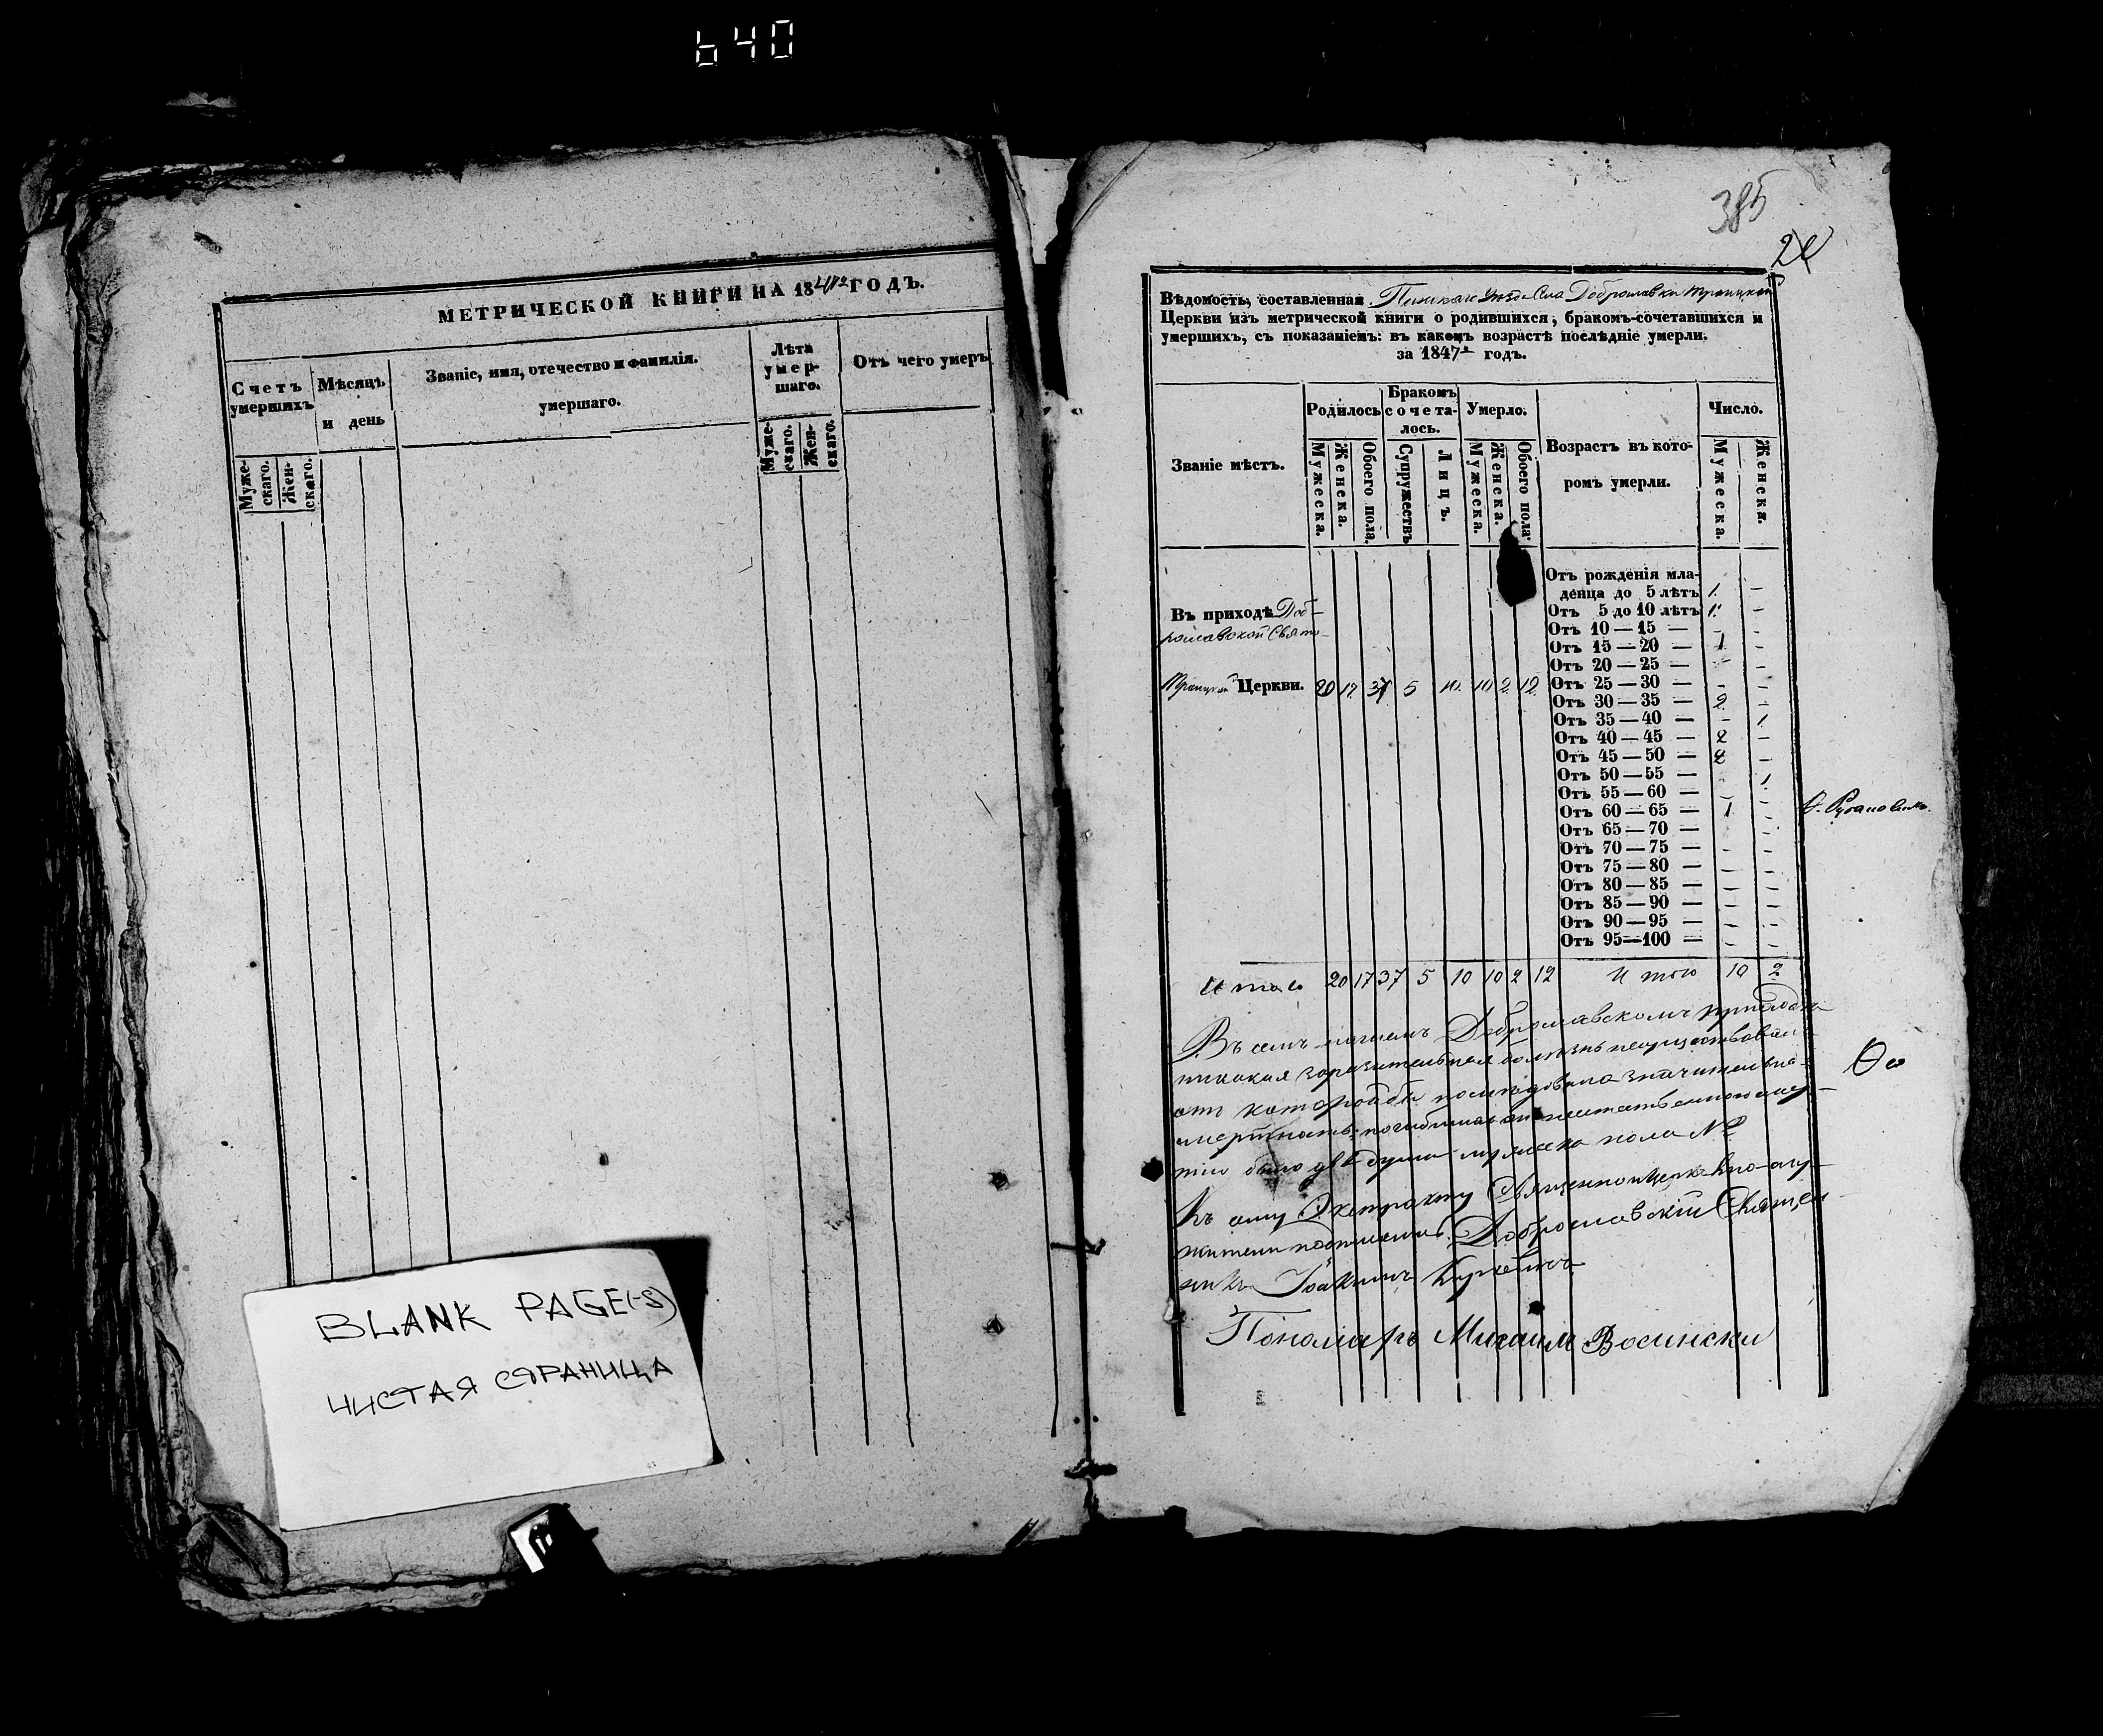 640
МЕТРИЧЕСКОЙ КНИГИ НА 1847 ГОДЪ.
Счетъ умершихъ
Мужескаго.
Женскаго.
Мѣсяцъ и день
Званіе, имя, отечество и фамилія.
умершаго.
Лѣта умершаго.
Мужескаго.
Женскаго.
Отъ чего умеръ
BLANK PAGE(-S)
ЧИСТАЯ СТРАНИЦА
385
Вѣдомость, составленная Пинскаго Уѣзда Села Доброславки Троицкой
Церкви изъ метрической книги о родившихся, бракомъ-сочетавшихся и
умершихъ, съ показаніемъ: въ какомъ возрастѣ послѣдніе умерли.
за 1847 годъ.
Званіе мѣстъ.
Родилось
Мужеска.
Женска.
Обоего пола.
Бракомъ сочеталось.
Супружествъ
Лицъ.
Умерло.
Мужеска.
Женска.
Обоего пола.
Возрастъ въ кото-
ромъ умерли.
Число.
Мужеска.
Женска.
Въ приходѣ Доб-
рославской Свято-
Троицкой Церкви. 20 17 37 5 10 10 2 12
Отъ рожденія мла-
денца до 5 лѣтъ 1. —
Отъ 5 до 10 лѣтъ 1. —
Отъ 10 — 15 — - -
Отъ 15 — 20 — 1 -
Отъ 20 — 25 — - -
Отъ 25 — 30 — - -
Отъ 30 — 35 — 2 -
Отъ 35 — 40 — - 1
Отъ 40 — 45 — 2 -
Отъ 45 — 50 — 2 -
Отъ 50 — 55 — - 1
Отъ 55 — 60 — - -
Отъ 60 — 65 — 1 -
Отъ 65 — 70 — - -
Отъ 70 — 75 — - -
Отъ 75 — 80 — - -
Отъ 80 — 85 — - -
Отъ 85 — 90 — - -
Отъ 90 — 95 — - -
Отъ 95 — 100 — - -
Итого 20 17 37 5 10 10 2 12 Итого 10 2
Въ семъ Доброславскомъ приходѣ
никакая заразительная болѣзнь несуществовала
отъ которойбы последовала значительная
смертность;
было двѣ души мужеска пола
Къ сему Экстракту Священноицерковно-слу-
жители подписались. Доброславскій Священ-
никъ Іоакимъ
Пономарь Михаилъ